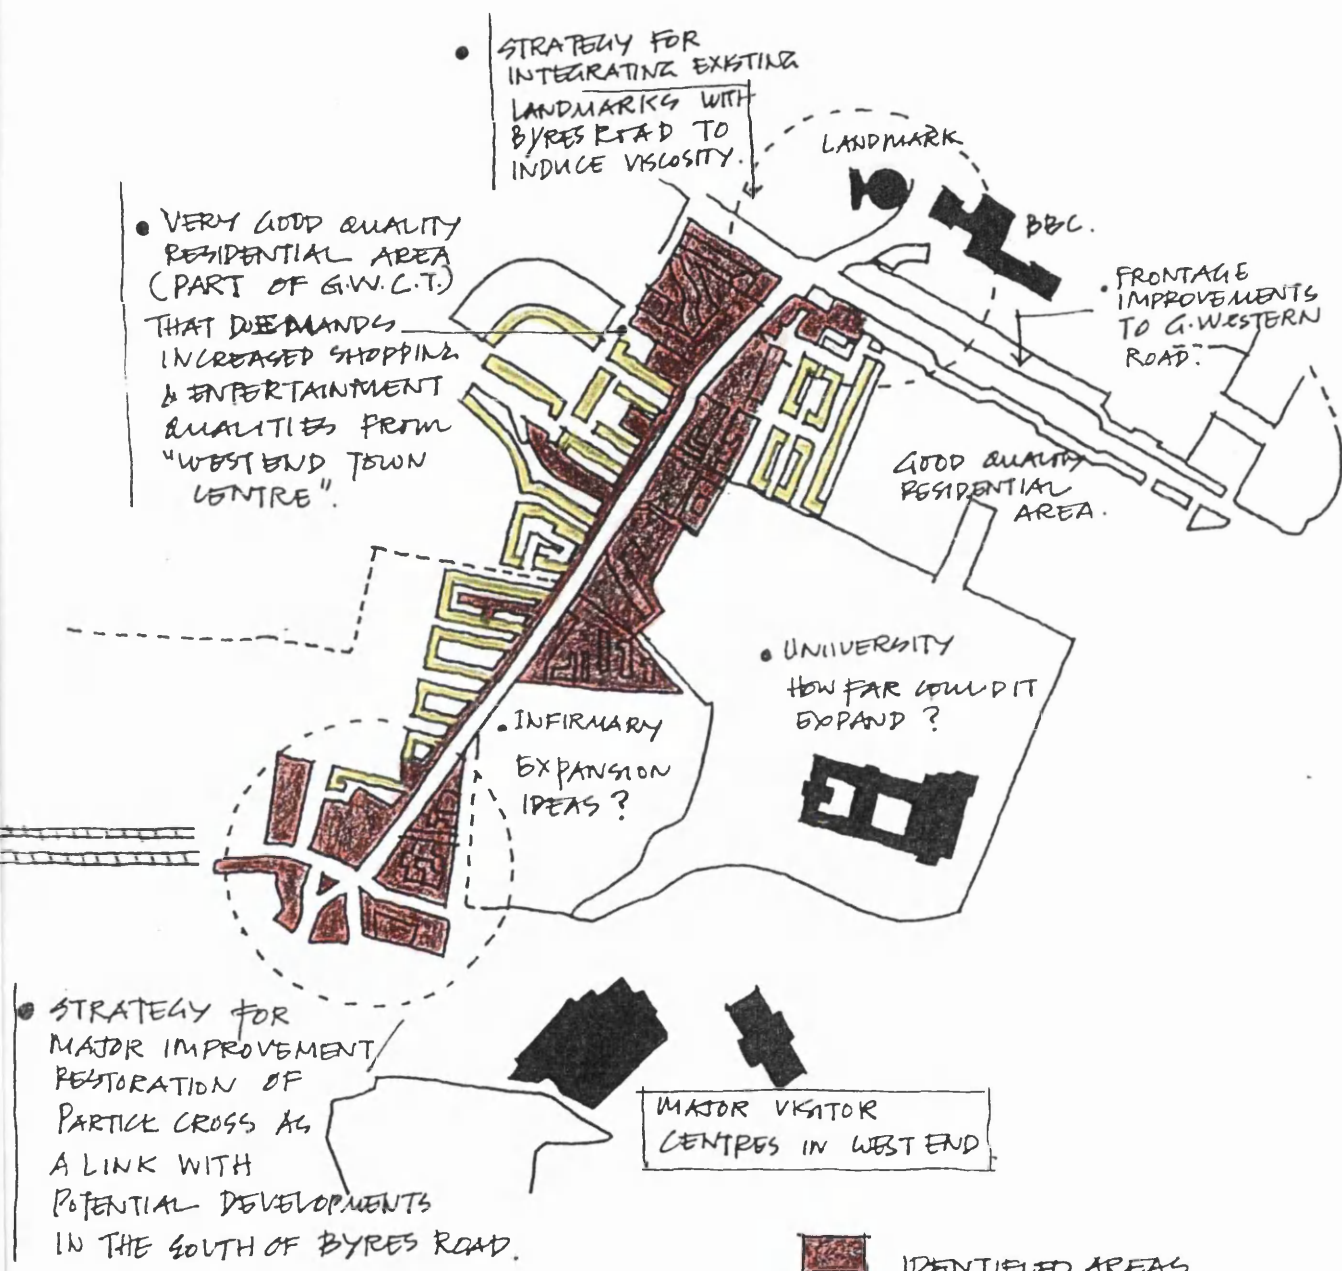 • STRATEGY FOR
INTEGRATING EXISTING
LANDMARKS WITH
BYRES ROAD TO
INDUCE VISCOSITY.
LANDMARK
BBC.
• VERY GOOD QUALITY
RESIDENTIAL AREA
(PART OF G.W.C.T.)
THAT DEMANDS
INCREASED SHOPPING
& ENTERTAINMENT
QUALITIES FROM
"WEST END TOWN
CENTRE".
• FRONTAGE
IMPROVEMENTS
TO G. WESTERN
ROAD.
GOOD QUALITY
RESIDENTIAL
AREA.
• UNIIVERSITY
HOW FAR COULD IT
EXPAND ?
• INFIRMARY
EXPANSION
IDEAS ?
• STRATEGY FOR
MAJOR IMPROVEMENT
RESTORATION OF
PARTICK CROSS AS
A LINK WITH
POTENTIAL DEVELOPMENTS
IN THE SOUTH OF BYRES ROAD.
MAJOR VISITOR
CENTRES IN WEST END
IDENTIFIED AREAS